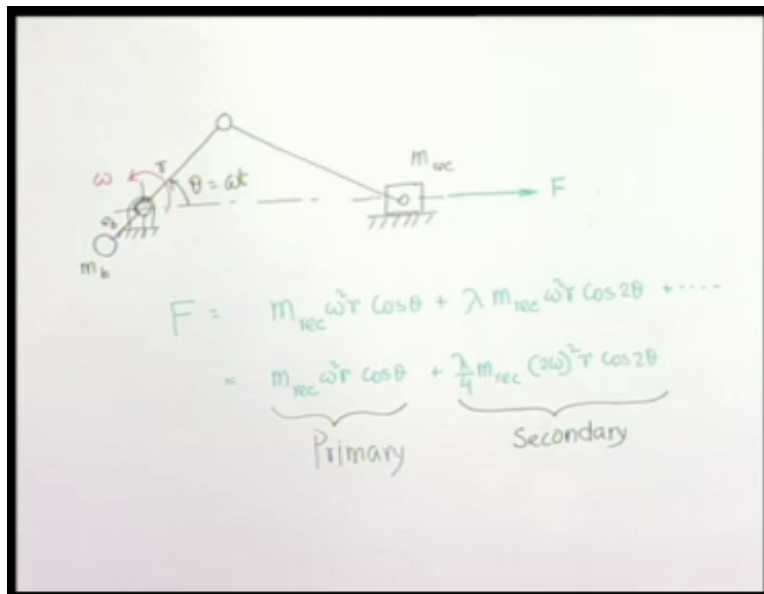 m_rec
ω r θ = ωt F
m_b
F = m_rec ω²r Cosθ + λ m_rec ω²r Cos2θ + ....
= m_rec ω²r Cosθ + λ/4 m_rec (2ω)² r Cos2θ
Primary Secondary